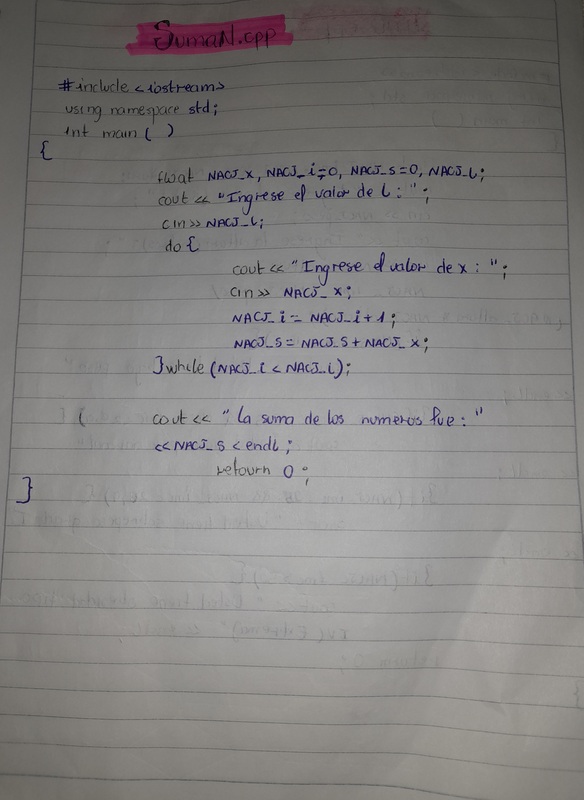 SumaN.cpp
#include <iostream>
using namespace std;
int main( )
{
float NACJ_x, NACJ_i=0, NACJ_s=0, NACJ_L;
cout << "Ingrese el valor de L: ";
cin>> NACJ_L;
do {
cout << "Ingrese el valor de x : ";
cin>> NACJ_x;
NACJ_i = NACJ_i+1;
NACJ_s = NACJ_s + NACJ_x;
}while (NACJ_i < NACJ_L);
( cout << " la suma de los numeros fue: "
<<NACJ_s < endl;
retourn 0;
}